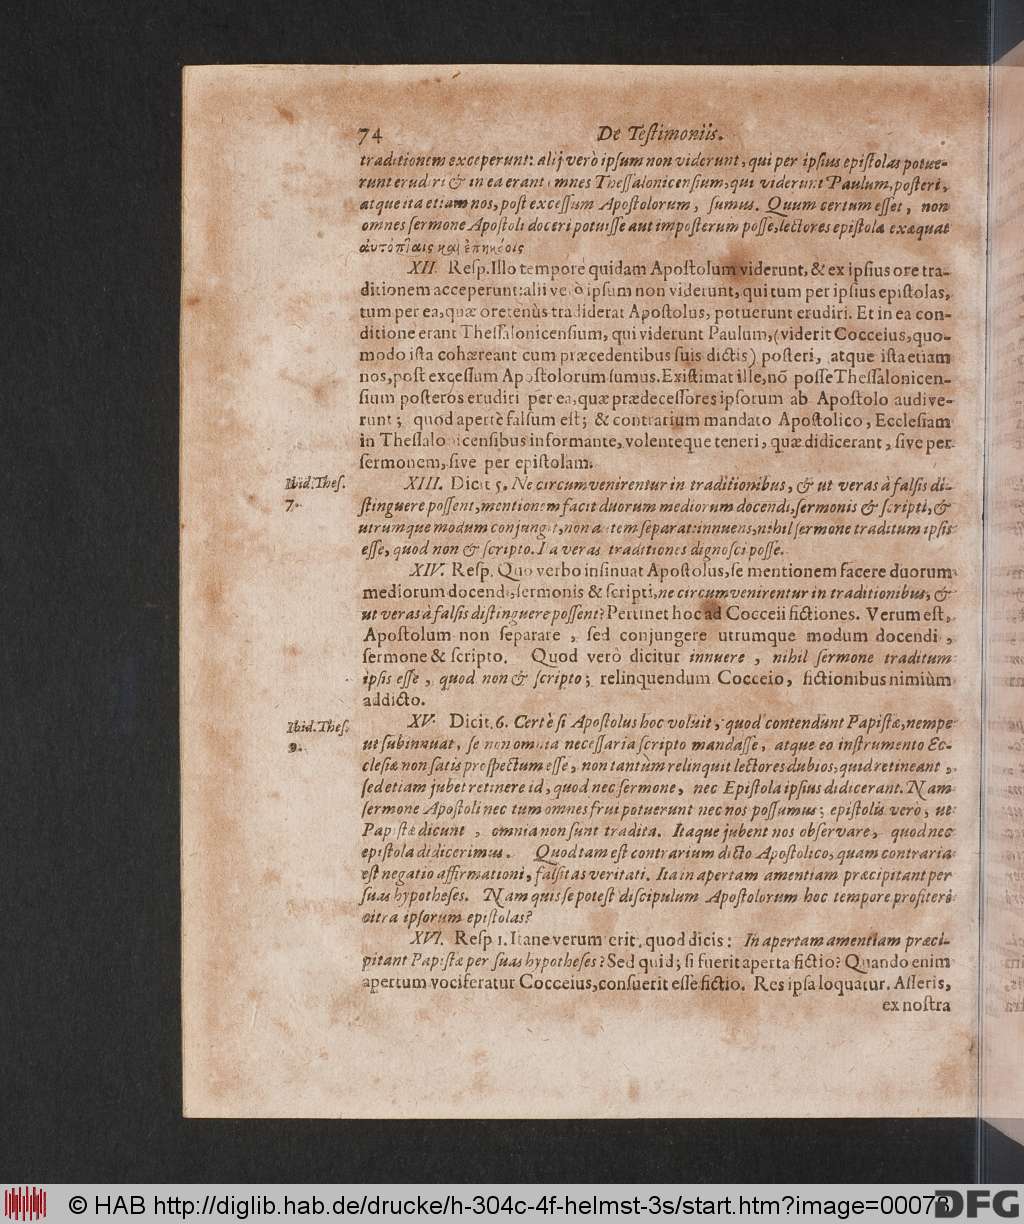 74 De Testimoniis.
traditionem exceperunt: alij verò ipsum non viderunt, qui per ipsius epistolas potue-
runt erudiri & in ea erant omnes Thessalonicensium, qui viderunt Paulum, posteri,
atque ita etiam nos, post excessum Apostolorum, sumus. Quum certum esset, non
omnes sermone Apostoli doceri potuisse aut imposterum posse, lectores epistola exæquat
αὐτόπταις καὶ ἐπηκόοις
XII. Resp. Illo tempore quidam Apostolum viderunt, & ex ipsius ore tra-
ditionem acceperunt: alii verò ipsum non viderunt, qui tum per ipsius epistolas,
tum per ea, quæ oretenùs tradiderat Apostolus, potuerunt erudiri. Et in ea con-
ditione erant Thessalonicensium, qui viderunt Paulum, (viderit Cocceius, quo-
modo ista cohæreant cum præcedentibus suis dictis) posteri, atque ista etiam
nos, post excessum Apostolorum sumus. Existimat ille, nō posse Thessalonicen-
sium posteros erudiri per ea, quæ prædecessores ipsorum ab Apostolo audive-
runt; quod apertè falsum est; & contrarium mandato Apostolico, Ecclesiam
in Thessalonicensibus informante, volenteque teneri, quæ didicerant, sive per
sermonem, sive per epistolam.
Ibid. Thes.
7.
XIII. Dicit 5. Ne circumvenirentur in traditionibus, & ut veras à falsis di-
stinguere possent, mentionem facit duorum mediorum docendi, sermonis & scripti, &
utrumque modum conjungit, non autem separat: innuens, nihil sermone traditum ipsis
esse, quod non & scripto. Ita veras traditiones dignosci posse.
XIV. Resp. Quo verbo insinuat Apostolus, se mentionem facere duorum
mediorum docendi, sermonis & scripti, ne circumvenirentur in traditionibus, &
ut veras à falsis distinguere possent? Pertinet hoc ad Cocceii fictiones. Verum est,
Apostolum non separare, sed conjungere utrumque modum docendi,
sermone & scripto. Quod verò dicitur innuere, nihil sermone traditum
ipsis esse, quod non & scripto; relinquendum Cocceio, fictionibus nimiùm
addicto.
Ibid. Thes.
9.
XV. Dicit. 6. Certè si Apostolus hoc voluit, quod contendunt Papistæ, nempe
ut subinnuat, se non omnia necessaria scripto mandasse, atque eo instrumento Ec-
clesiæ non satis prospectum esse, non tantùm relinquit lectores dubios, quid retineant,
sed etiam jubet retinere id, quod nec sermone, nec Epistola ipsius didicerant. Nam
sermone Apostoli nec tum omnes frui potuerunt nec nos possumus; epistolis verò, ut
Papistæ dicunt, omnia non sunt tradita. Itaque jubent nos observare, quod nec
epistola didicerimus. Quod tam est contrarium dicto Apostolico, quam contraria
est negatio affirmationi, falsitas veritati. Ita in apertam amentiam præcipitant per
suas hypotheses. Nam quis se potest discipulum Apostolorum hoc tempore profiteri
citra ipsorum epistolas?
XVI. Resp. 1. Itane verum erit, quod dicis: In apertam amentiam præci-
pitant Papistæ per suas hypotheses? Sed quid; si fuerit aperta fictio? Quando enim
apertum vociferatur Cocceius, consuerit esse fictio. Res ipsa loquatur. Asseris,
ex nostra
© HAB http://diglib.hab.de/drucke/h-304c-4f-helmst-3s/start.htm?image=00078
DFG